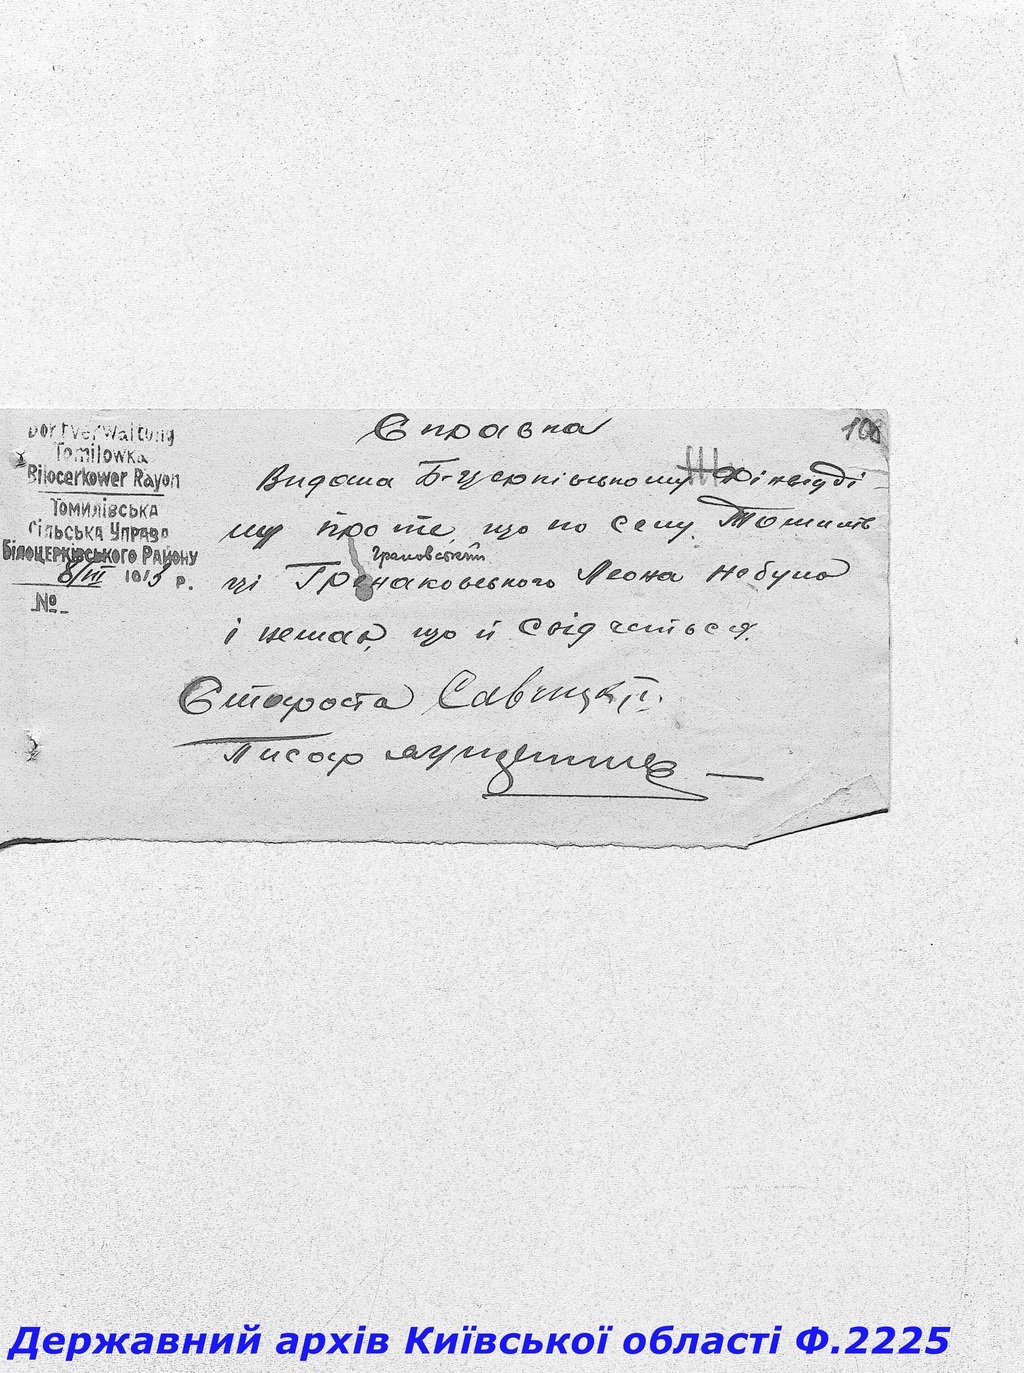 Dorfverwaltung
Tomilowka
Bilocerkower Rayon
Томилівська
Сільська Управа
Білоцерківського Району
8/III 1943 р.
№
108
Справка
Видана Б-Церківському
му про те, що по селу Томилів
Грановський
ці Леона небуло
і немає, що й свідчиться.
Староста Савицький
Писар
Державний архів Київської області Ф.2225